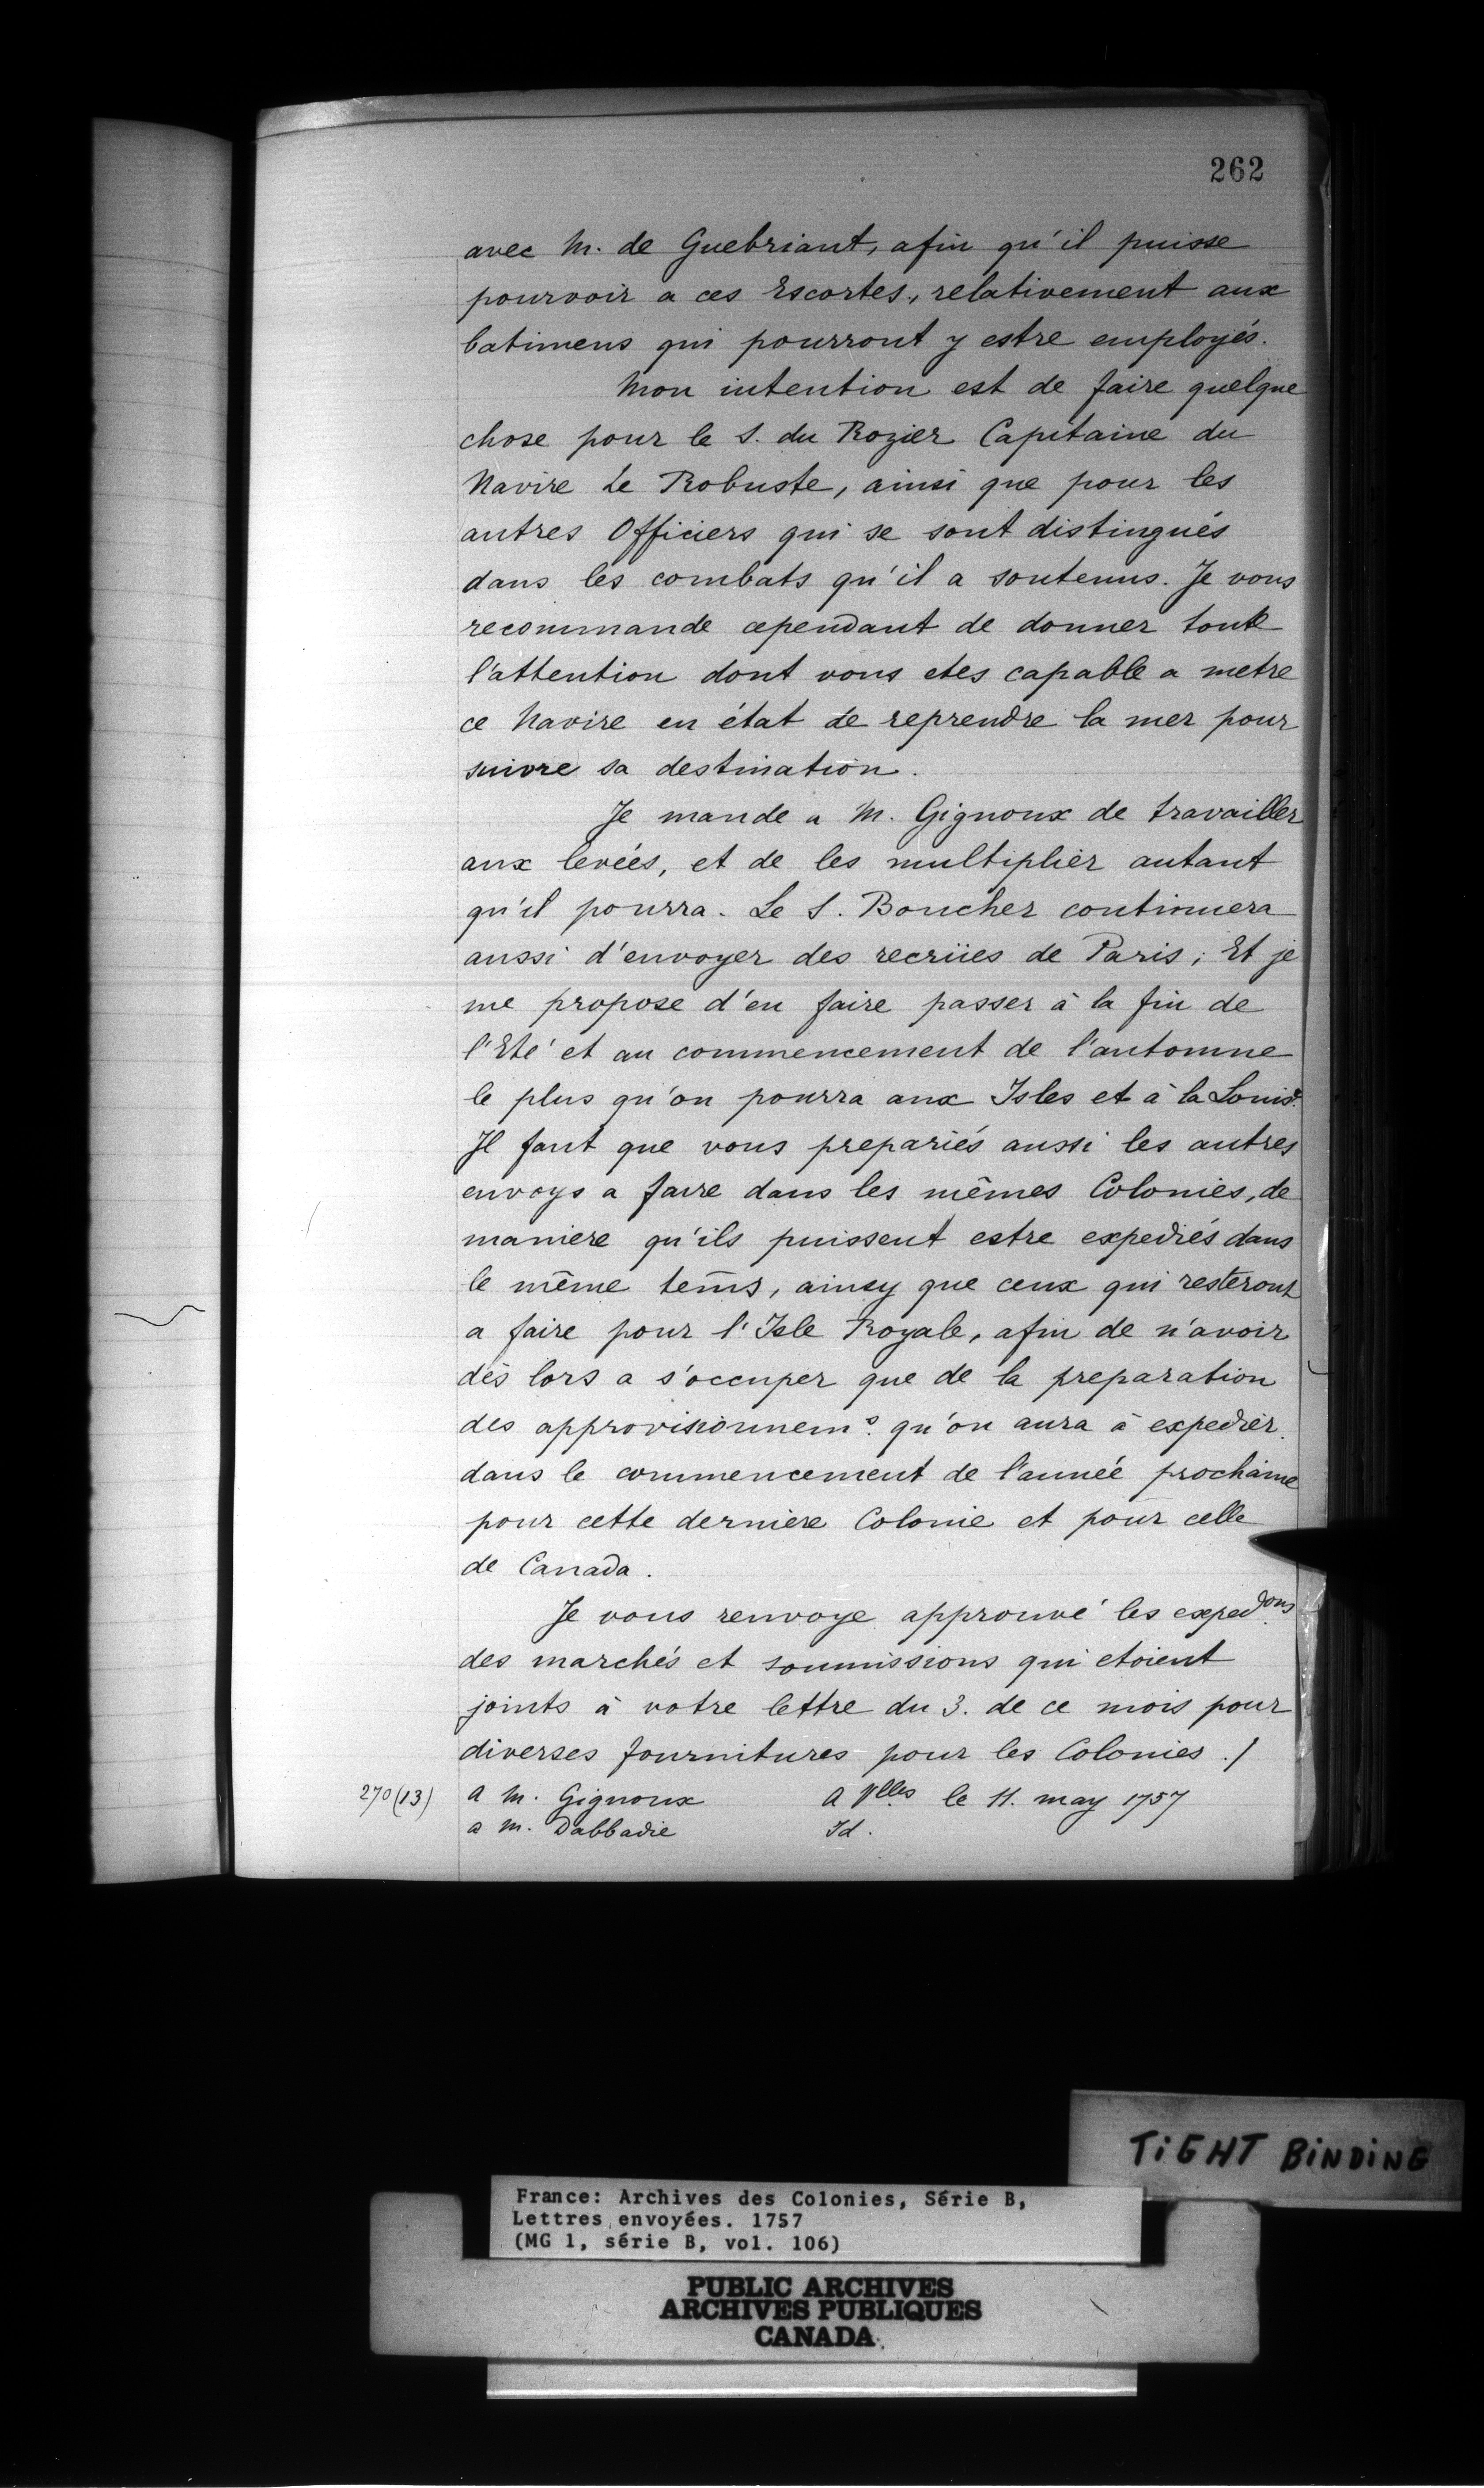 262
avec M. de Guebriant, afin qu'il puisse
pourvoir a ces Escortes, relativement aux
batimens qui pourront y estre employés.
Mon intention est de faire quelque
chose pour le S. du Rozier Capitaine du
Navire Le Robuste, ainsi que pour les
autres Officiers qui se sont distingués
dans les combats qu'il a soutenus. Je vous
recommande cependant de donner toute
l'attention dont vous etes capable a metre
ce Navire en état de reprendre la mer pour
suivre sa destination.
Je mande a M. Gignoux de travailler
aux levées, et de les multiplier autant
qu'il pourra. Le S. Boucher continuera
aussi d'envoyer des recrües de Paris; Et je
me propose d'en faire passer à la fin de
l'Eté et au commencement de l'automne
le plus qu'on pourra aux Isles et à la Louise.
Il faut que vous prepariés aussi les autres
envoys a faire dans les mêmes Colonies, de
maniere qu'ils puissent estre expediés dans
le même tem̃s, ainsy que ceux qui resteront
a faire pour l'Isle Royale, afin de n'avoir
dès lors a s'occuper que de la preparation
des approvisionnems. qu'on aura à expedier
dans le commencement de l'année prochaine
pour cette derniere Colonie et pour celle
de Canada.
Je vous renvoye approuvé les expedons
des marchés et soumissions qui etoient
joints à votre lettre du 3. de ce mois pour
diverses fournitures pour les Colonies ./
270 (13) A M. Gignoux A Vlles le 11. may 1757
a M. Dabbadie Id.
TiGHT BiNDiNG
France: Archives des Colonies, Série B,
Lettres envoyées. 1757
(MG 1, série B, vol. 106)
PUBLIC ARCHIVES
ARCHIVES PUBLIQUES
CANADA